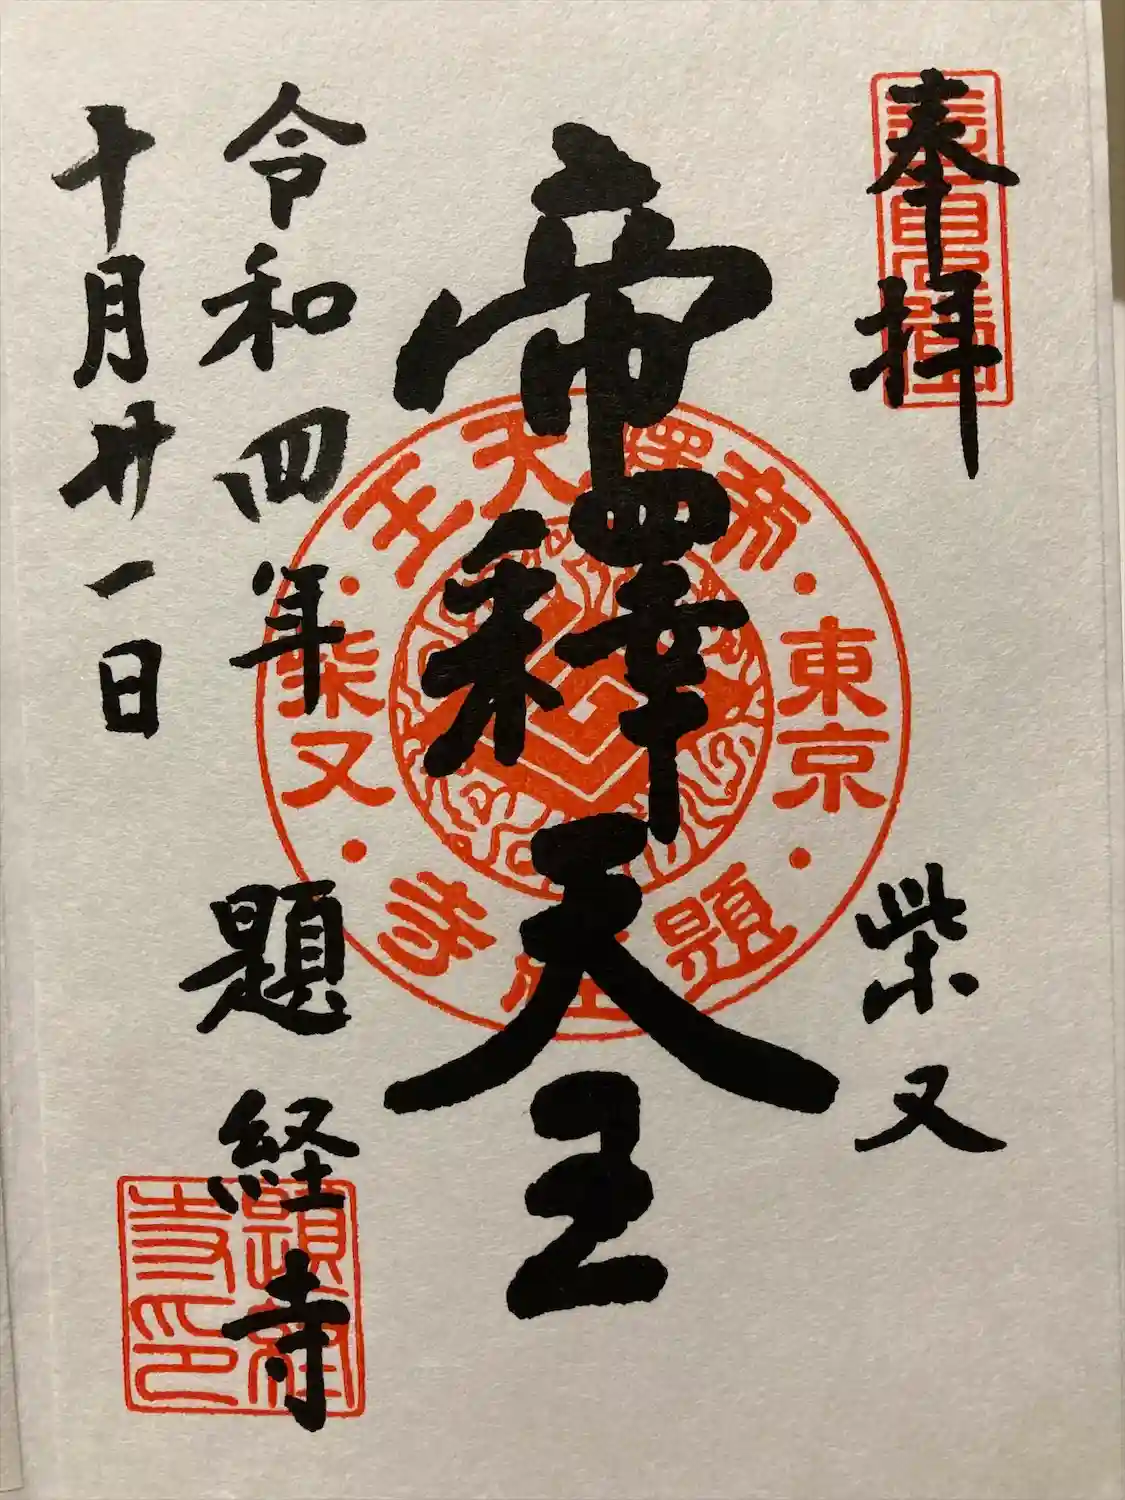 奉拝
柴又
帝釋天王
令和四年
題経寺
十月廿一日
帝釋天王
東京
柴又
題経寺
題経寺印